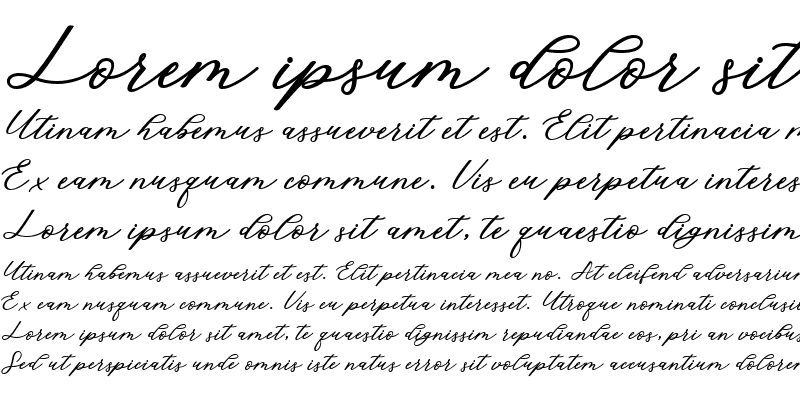 Lorem ipsum dolor sit
Utinam habemus assueverit et est. Elit pertinacia m
Ex eam nusquam commune. Vis eu perpetua interes
Lorem ipsum dolor sit amet, te quaestio dignissim
Utinam habemus assueverit et est. Elit pertinacia mea no. At eleifend adversarium
Ex eam nusquam commune. Vis eu perpetua interesset. Utroque nominati conclusio
Lorem ipsum dolor sit amet, te quaestio dignissim repudiandae eos, pri an vocibus
Sed ut perspiciatis unde omnis iste natus error sit voluptatem accusantium dolorem